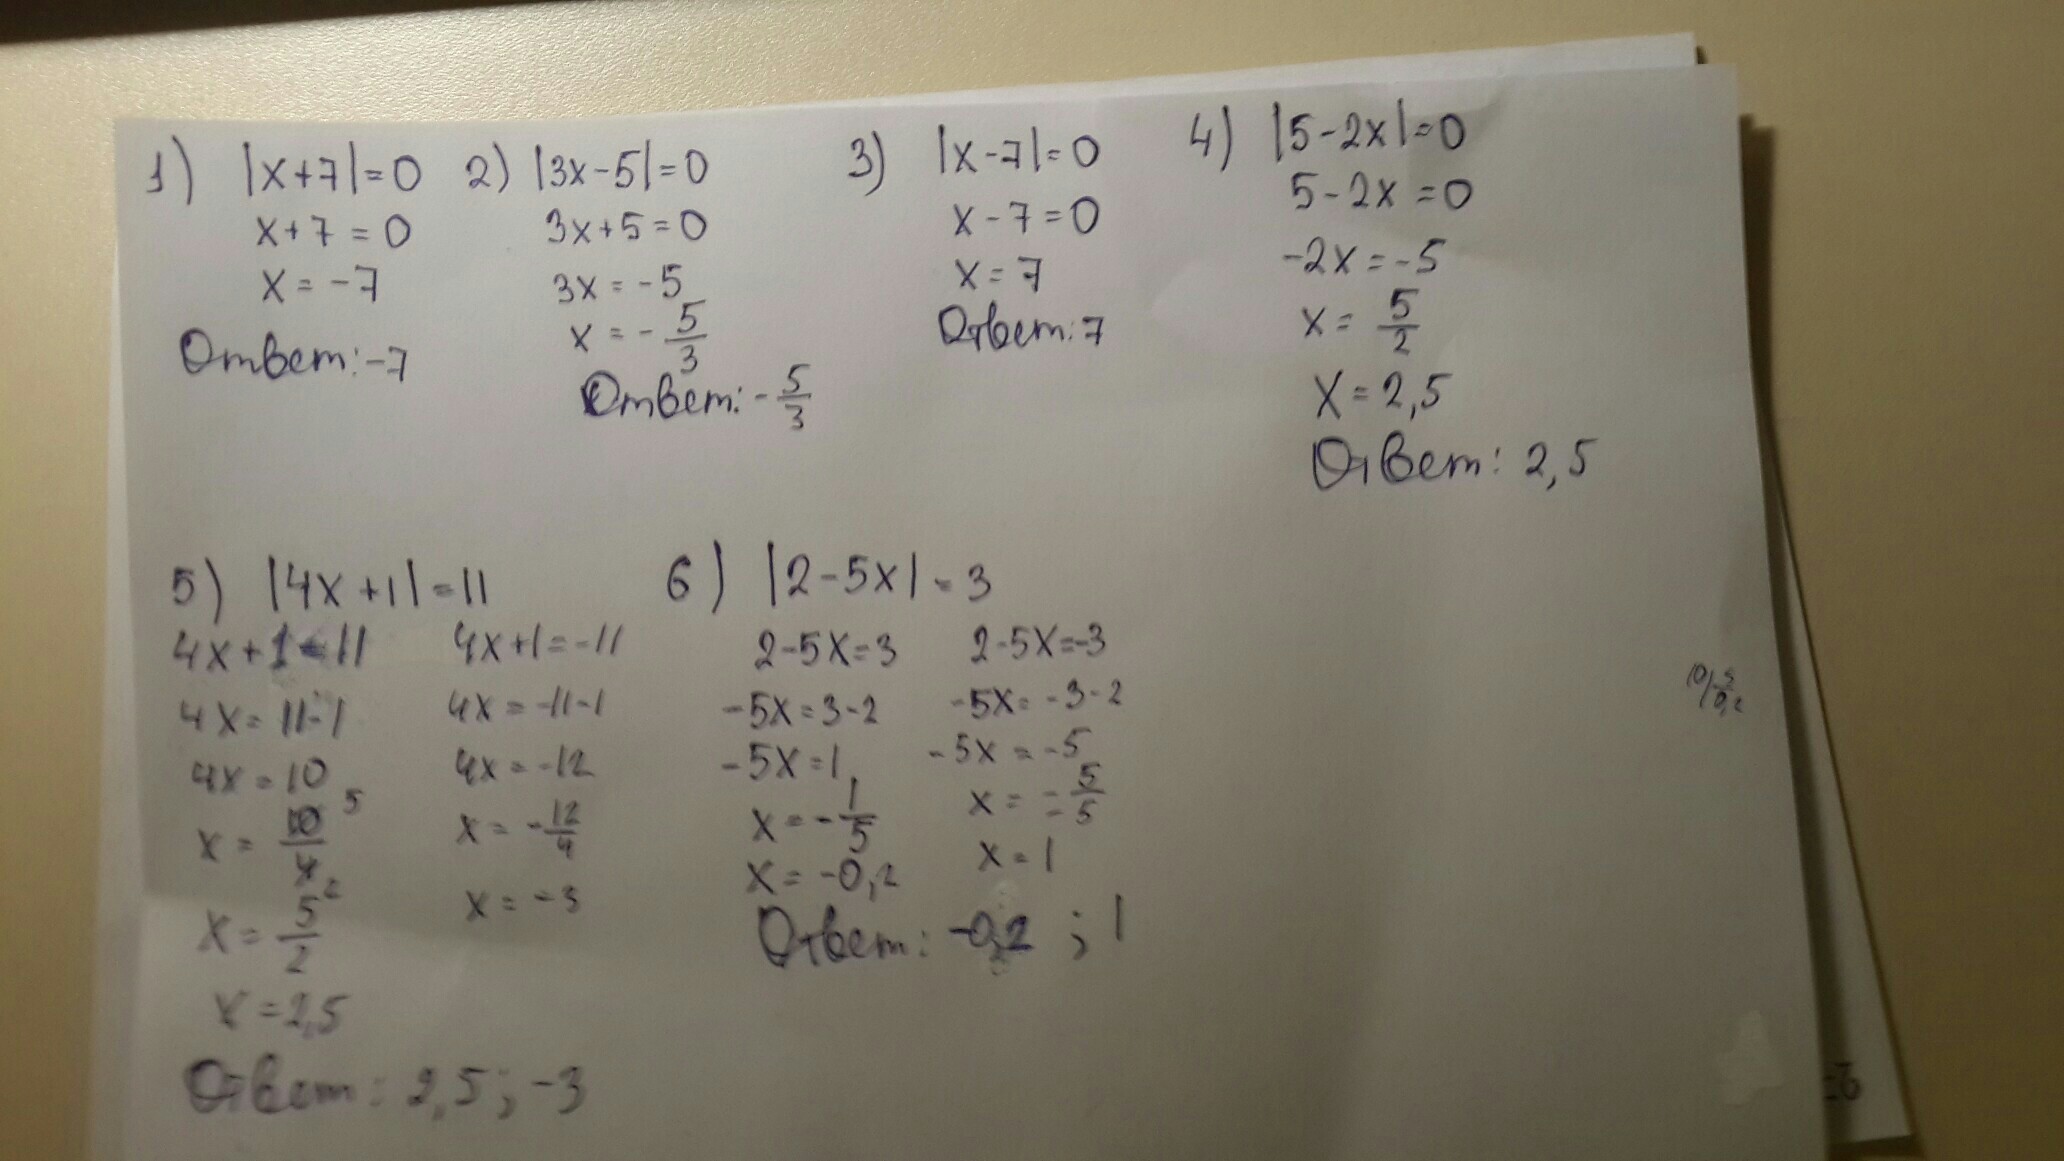 1) |x+7|=0
x+7=0
x=-7
Ответ:-7
2) |3x-5|=0
3x+5=0
3x=-5
x=-5/3
Ответ:-5/3
3) |x-7|=0
x-7=0
x=7
Ответ:7
4) |5-2x|=0
5-2x=0
-2x=-5
x=5/2
x=2,5
Ответ: 2,5
5) |4x+1|=11
4x+1=11
4x=11-1
4x=10
x=10 5/4 2
x=5/2
x=2,5
4x+1=-11
4x=-11-1
4x=-12
x=-12/4
x=-3
Ответ: 2,5; -3
6) |2-5x|=3
2-5x=3
-5x=3-2
-5x=1
x=-1/5
x=-0,2
2-5x=-3
-5x=-3-2
-5x=-5
x==5/5
x=1
Ответ: -0,2 ; 1